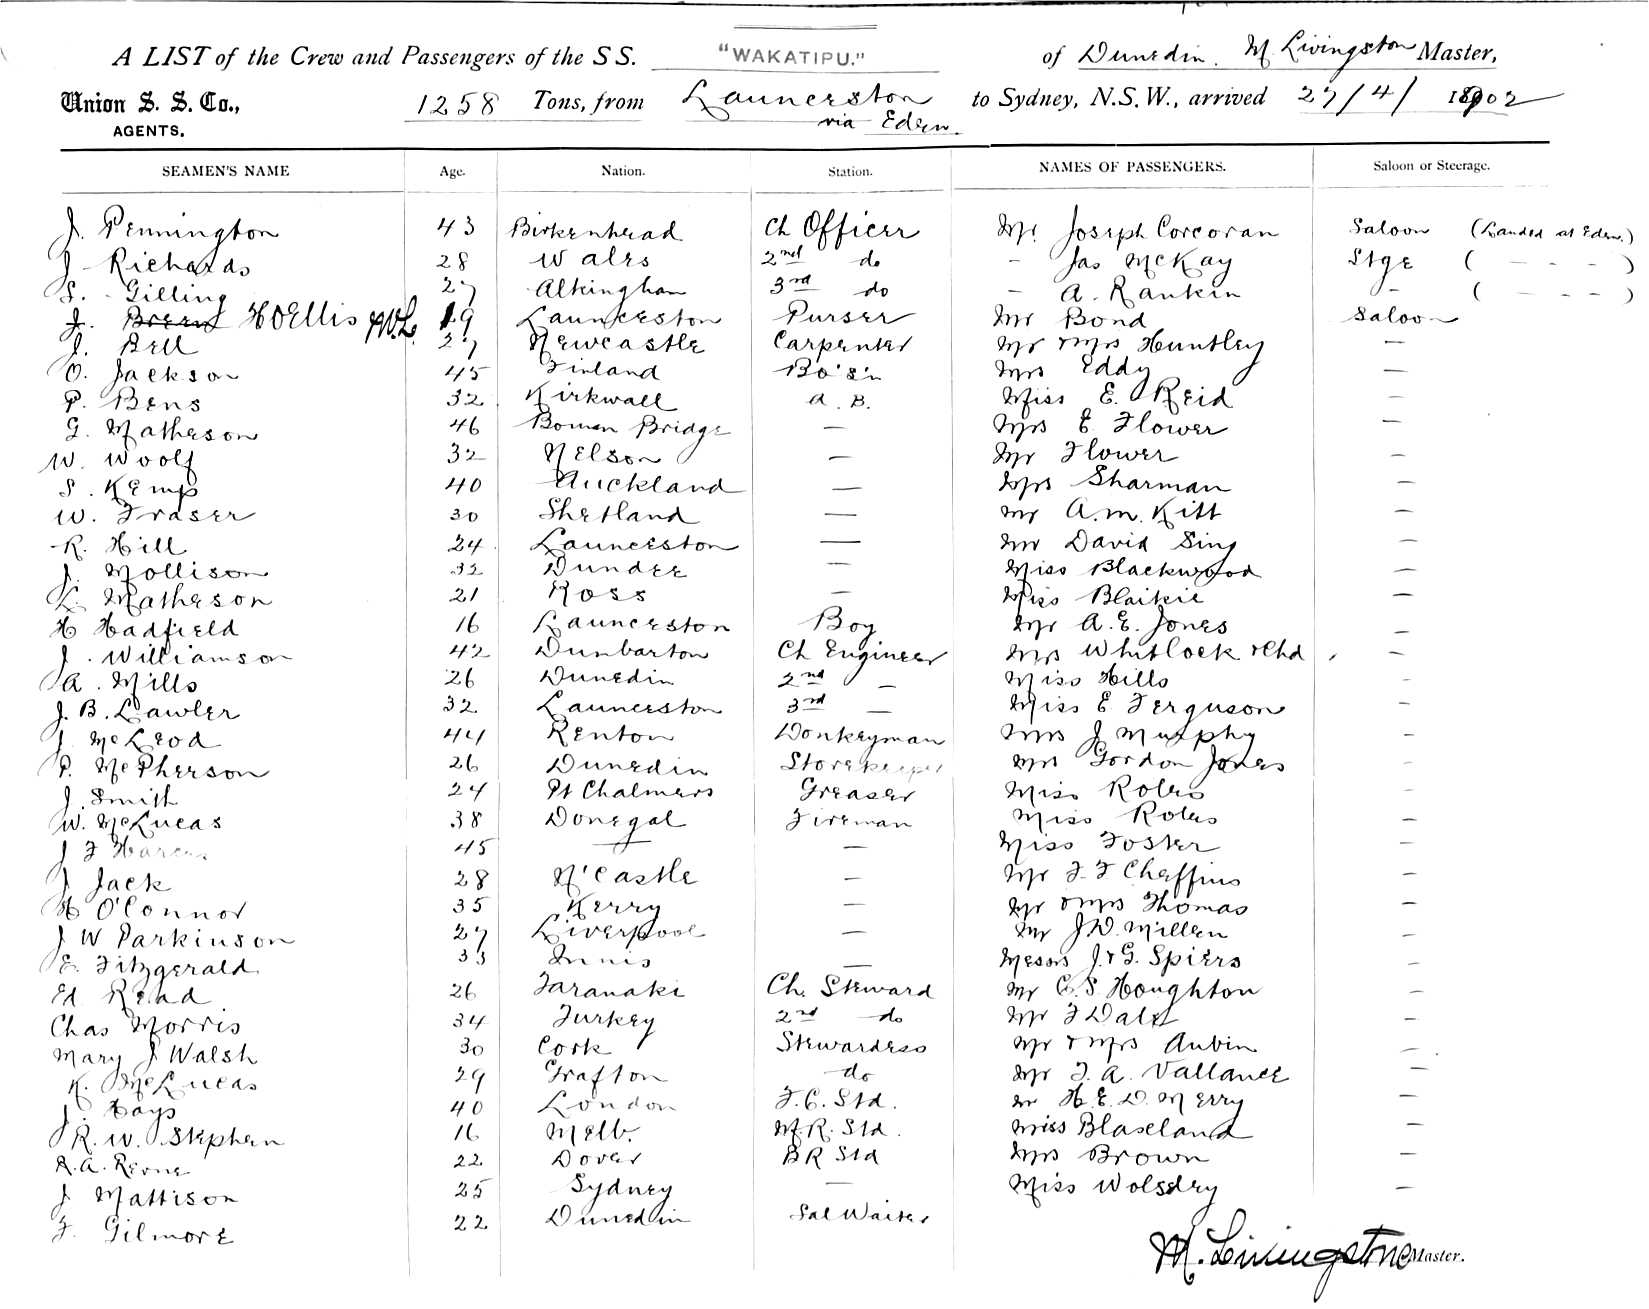 A LIST of the Crew and Passengers of the S S. "WAKATIPU." of Dunedin. M. Livingston Master,
Union S. S. Co., 1258 Tons, from Launceston to Sydney, N.S.W., arrived 27/4/ 1902
AGENTS. via Eden.
SEAMEN'S NAME Age. Nation. Station. NAMES OF PASSENGERS. Saloon or Steerage.
J. Pennington 43 Birkenhead Ch Officer Mr. Joseph Corcoran Saloon (Landed at Eden.)
J Richards 28 Wales 2nd do - Jas McKay Stge ( - - - )
S. Gilling 27 Altkingham 3rd do - A. Rankin - ( - - - )
J. H D Ellis 19 Launceston Purser Mr Bond Saloon
J. Bell 27 Newcastle Carpenter Mr & Mrs Huntley —
O. Jackson 45 Finland Bo's'n Mrs Eddy —
P. Bens 32 Kirkwall A. B. Miss E. Reid —
G. Matheson 46 Boman Bridge — Mrs E Flower —
W. Woolf 32 Nelson — Mr Flower —
S. Kemp 40 Auckland — Mrs Sharman —
W. Fraser 30 Shetland — Mr A. M. Kitt —
R. Hill 24 Launceston — Mr David Sing —
J. Mollison 32 Dundee — Miss Blackwood —
L. Matheson 21 Ross — Miss Blaikie —
H Hadfield 16 Launceston Boy Mr A. E. Jones —
J. Williamson 42 Dunbarton Ch Engineer Mrs Whitlock & Chd —
A. Mills 26 Dunedin 2nd — Miss Hills —
J. B. Lawler 32 Launceston 3rd — Miss E. Ferguson —
J McLeod 44 Renton Donkeyman Mrs J Murphy —
P. McPherson 26 Dunedin Storekeeper Mrs Gordon Jones —
J. Smith 24 Pt Chalmers Greaser Miss Roles —
W. McLucas 38 Donegal Fireman Miss Roles —
J F 45 — — Miss Foster —
J Jack 28 N'Castle — Mr F. F Cheffins —
H O'Connor 35 Kerry — Mr & Mrs Thomas —
J W Parkinson 27 Liverpool — Mr J D. Millen —
E. Fitzgerald 33 Innis — Messrs J. & G. Spiers —
Ed Read 26 Taranaki Ch. Steward Mr C. S Houghton —
Chas Morris 34 Turkey 2nd do Mr F Daly —
Mary J Walsh 30 Cork Stewardess Mr & Mrs Aubin —
K. McLucas 29 Grafton do Mr F. A. Vallance —
J Hays 40 London F. C. Std. Mr H. E. D. Merry —
R. W. Stephen 16 Melb. M. R. Std. Miss Blaseland —
A. A. 22 Dover B R Std Mrs Brown —
J Mattison 25 Sydney — Miss Wolsdry —
F. Gilmore 22 Dunedin Sal Waiter
M. Livingstone Master.